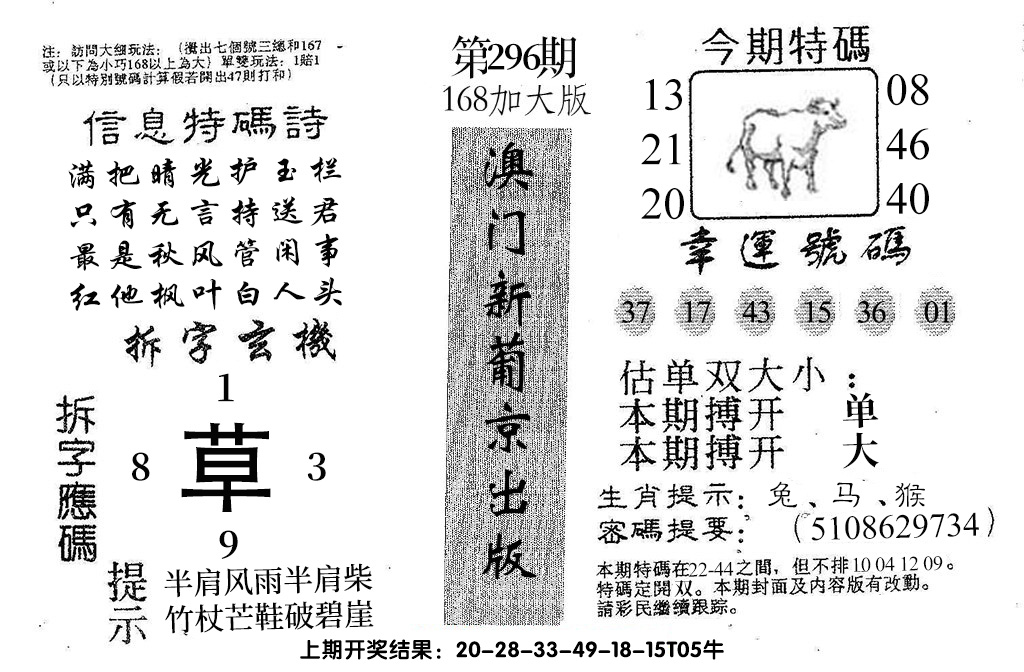 注：訪問大细玩法：（攪出七個號三總和167
或以下為小巧168以上為大）單雙玩法：1賠1
（只以特別號碼計算假若開出47則打和）
信息特碼詩
满把晴光护玉栏
只有无言持送君
最是秋风管闲事
红他枫叶白人头
拆字玄機
拆字應碼
1
8
草
3
9
提示
半肩风雨半肩柴
竹杖芒鞋破碧崖
第296期
168加大版
澳门新葡京出版
今期特碼
13
21
20
08
46
40
幸運號碼
37 17 43 15 36 01
估单双大小：
本期搏开 单
本期搏开 大
生肖提示：兔、马、猴
密碼提要：（5108629734）
本期特碼在22-44之間，但不排10 04 12 09。
特碼定開双。本期封面及内容版有改動。
請彩民繼續跟踪。
上期开奖结果：20-28-33-49-18-15T05牛